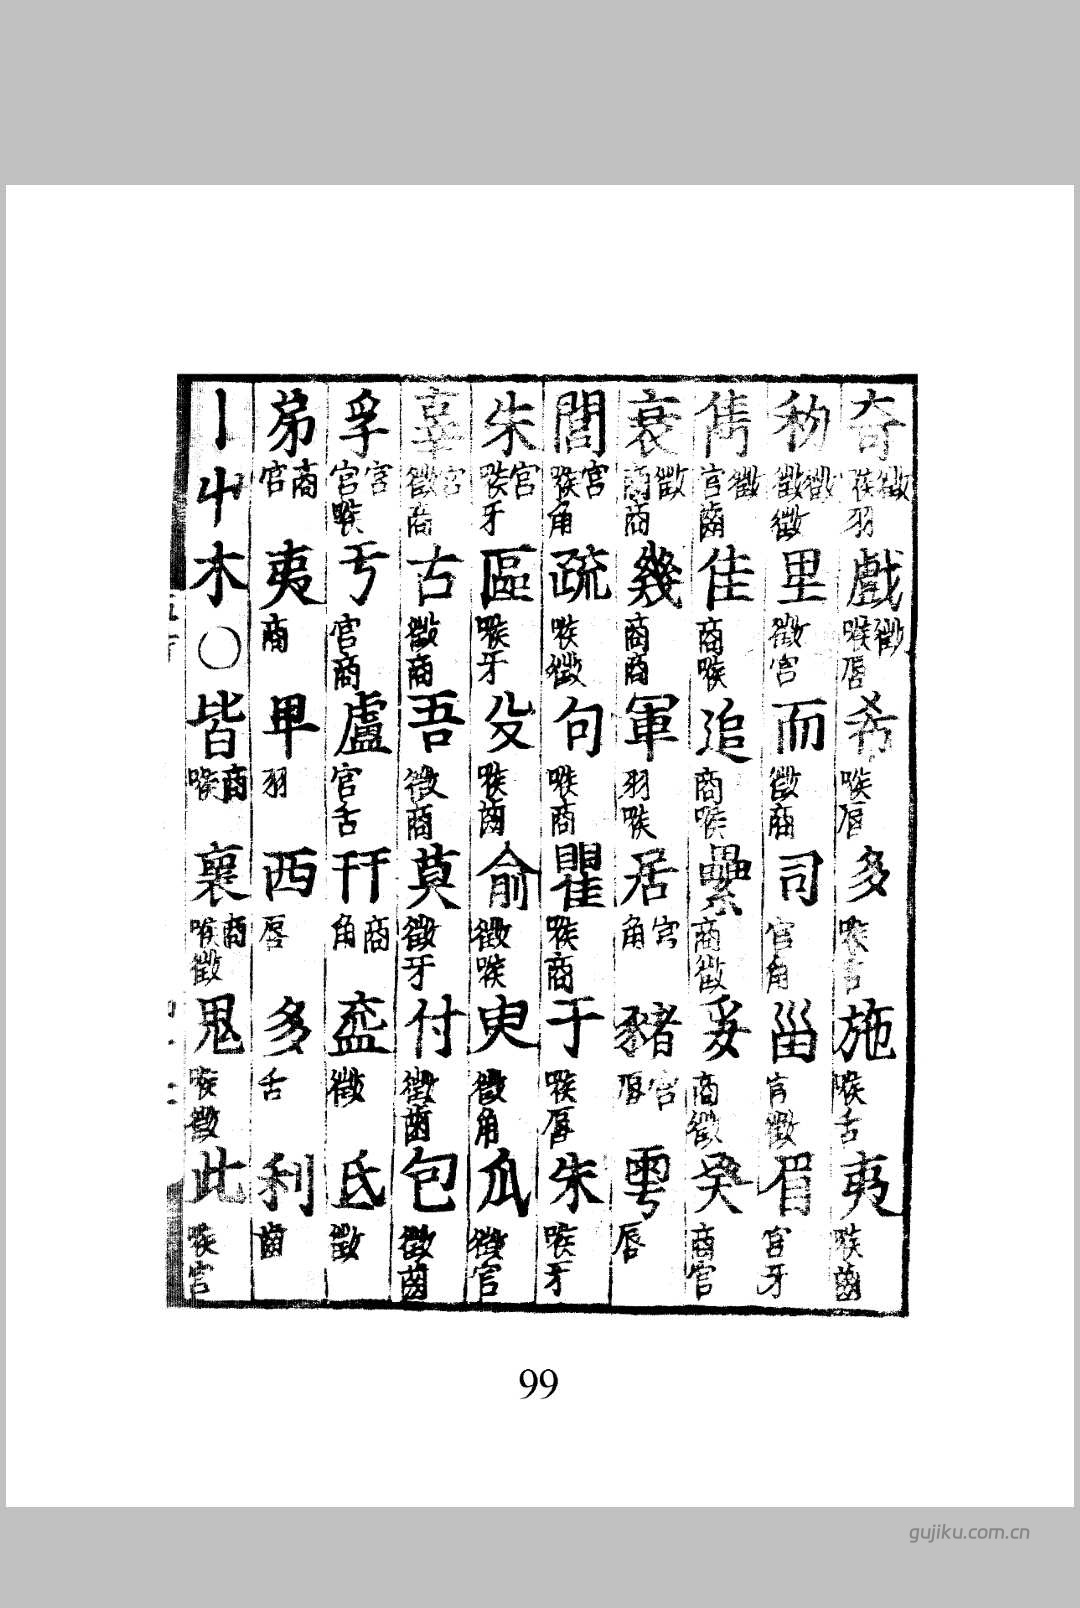 奇徵喉羽戲徵喉唇希喉唇多喉舌施喉舌夷喉齒
秒徵徵徵里徵宮而徵商司宮角甾宮徵眉宮牙
雋徵宮齒隹商喉追商喉纍商徵妥商徵癸商宮
衰徵商商幾商商軍羽喉居宮角豬宮唇雩唇
閭宮喉角疏喉徵句喉商瞿喉商于喉唇朱喉牙
朱宮喉牙區喉牙殳喉齒俞徵喉臾徵角瓜徵宮
辜宮徵商古徵商吾徵商莫徵牙付徵齒包徵齒
孚宮宮喉亐宮商盧宮舌幵商角盃徵氐徵
弟商宮夷商卑羽西唇多舌利齒
丨屮木〇皆商喉襄商喉徵鬼喉徵此喉宮
99
gujiku.com.cn